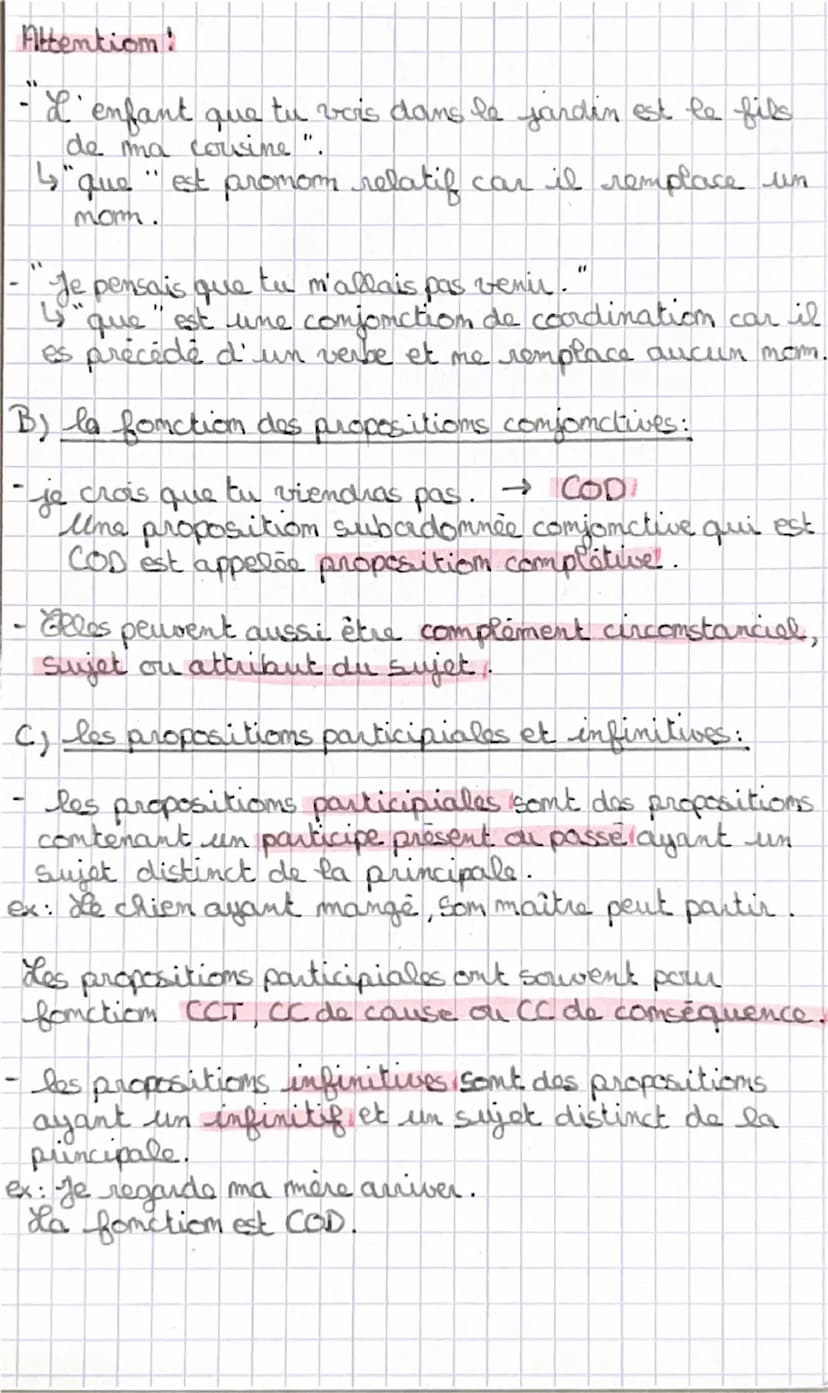 Attention !
- "L'enfant que tu vois dans le jardin est le fils
de ma cousine".
↳ "que" est pronom relatif car il remplace un
nom.
- "Je pensais que tu n'allais pas venir."
↳ "que" est une conjonction de coordination car il
es précédé d'un verbe et ne remplace aucun nom.
B) la fonction des propositions conjonctives :
- je crois que tu viendras pas. → COD
Une proposition subordonnée conjonctive qui est
COD est appelée proposition complétive.
- Elles peuvent aussi être complément circonstanciel,
sujet ou attribut du sujet.
C) les propositions participiales et infinitives :
- les propositions participiales sont des propositions
contenant un participe présent ou passé ayant un
sujet distinct de la principale.
ex : Le chien ayant mangé, son maître peut partir.
Les propositions participiales ont souvent pour
fonction CCT, CC de cause ou CC de conséquence.
- les propositions infinitives sont des propositions
ayant un infinitif et un sujet distinct de la
principale.
ex : Je regarde ma mère arriver.
La fonction est COD.